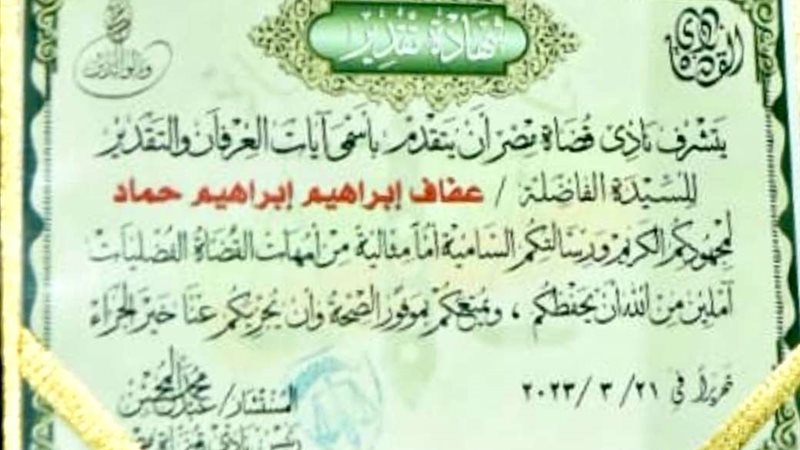 شهادة تقدير
وبالوالدين
نادي القضاة
يتشرف نادي قضاة مصر أن يتقدم بأسمى آيات العرفان والتقدير
للسيدة الفاضلة / عفاف إبراهيم إبراهيم حماد
لمجهودكم الكريم ورسالتكم السامية أماً مثالية من أمهات القضاة الفضليات
آملين من الله أن يحفظكم ، ويمتعكم بموفور الصحة وأن يجزيكم عنا خير الجزاء
تحريراً في ٢١/ ٣ /٢٠٢٣
المستشار/
رئيس نادي قضاة مصر